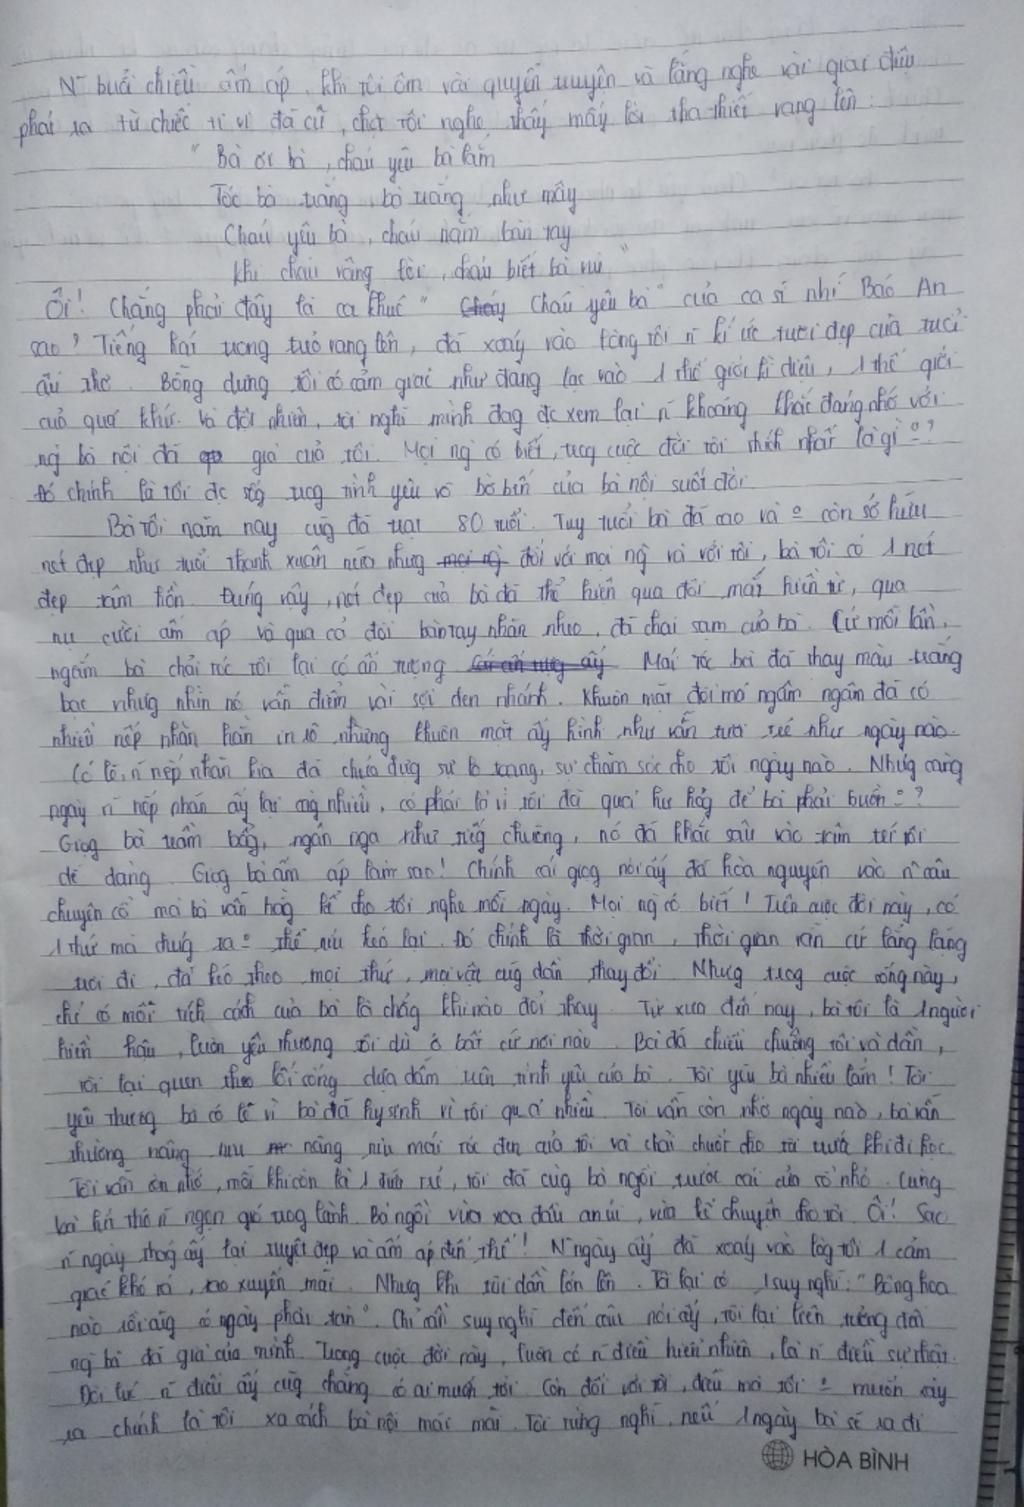 N~ buổi chiều ấm áp, khi tôi ôm vài quyển truyện và lắng nghe vài giai điệu
phát ra từ chiếc ti vi đã cũ, chợt tôi nghe thấy mấy lời tha thiết vang lên:
"Bà ơi bà, cháu yêu bà lắm
Tóc bà trắng, bà trắng như mây
Cháu yêu bà, cháu nắm bàn tay
Khi cháu vâng lời, cháu biết bà vui"
Ôi! Chẳng phải đây là ca khúc " Cháu yêu bà" của ca sĩ nhí Bảo An
sao? Tiếng hát trong trẻo vang lên, đã xoáy vào lòng tôi n~ kí ức tươi đẹp của tuổi
ấu thơ. Bỗng dưng tôi có cảm giác như đang lạc vào 1 thế giới kì diệu, 1 thế giới
của quá khứ. Và đột nhiên, tôi nghĩ mình đag đc xem lại n~ khoảng khắc đáng nhớ với
ng bà nội đã già của tôi. Mọi ng có biết, trog cuộc đời tôi thích nhất là gì º?
Đó chính là tôi đc sốg trog tình yêu vô bờ bến của bà nội suốt đời
Bà tôi năm nay cũg đã trạc 80 tuổi. Tuy tuổi bà đã cao và º còn sở hữu
nét đẹp như tuổi thanh xuân nữa nhưg đối với mọi ng và với tôi, bà tôi có 1 nét
đẹp tâm hồn. Đúng vậy, nét đẹp của bà đã thể hiện qua đôi mắt hiền từ, qua
nụ cười ấm áp và qua cả đôi bàn tay nhăn nheo, đã chai sạm của bà. Cứ mỗi lần,
ngắm bà chải tóc tôi lại có ấn tượng Mái tóc bà đã thay màu trắng
bạc nhưg nhìn nó vẫn điểm vài sợi đen nhánh. Khuôn mặt đồi mồ ngăm ngăm đã có
nhiều nếp nhăn hằn in rõ nhưng khuôn mặt ấy hình như vẫn tươi trẻ như ngày nào.
Có lẽ, n~ nếp nhăn kia đã chứa đựg sự lo toang, sự chăm sóc cho tôi ngày nào. Nhưg càng
ngày n~ nếp nhăn ấy lại càg nhiều, có phải là vì tôi đã quá hư hỏg để bà phải buồn º?
Giọg bà trầm bổg, ngân nga như tiếg chuông, nó đã khắc sâu vào tâm trí tôi
dễ dàng. Giọg bà ấm áp làm sao! Chính cái giọg nói ấy đã hòa nguyện vào n~ câu
chuyện cổ mà bà vẫn hằg kể cho tôi nghe mỗi ngày. Mọi ng có biết! Trên cuộc đời này, có
1 thứ mà chúg ta º thể níu kéo lại. Đó chính là thời gian, thời gian vẫn cứ lẳng lặng
trôi đi, đã kéo theo mọi thứ, mọi vật cũg dần thay đổi. Nhưg trog cuộc sống này,
chỉ có mỗi tích cách của bà là chẳg khi nào đổi thay. Từ xưa đến nay, bà tôi là 1 người
hiền hậu, luôn yêu thương tôi dù ở bất cứ nơi nào. Bà đã chiều chuộng tôi và dần,
tôi lại quen theo lối sống dựa dẫm trên tình yêu của bà. Tôi yêu bà nhiều lắm! Tôi
yêu thương bà có lẽ vì bà đã hy sinh vì tôi quá nhiều. Tôi vẫn còn nhớ ngày nào, bà vẫn
thường nâng niu mái tóc đen của tôi và chải chuốt cho tôi trước khi đi học.
Tôi vẫn còn nhớ, mỗi khi còn là 1 đứa trẻ, tôi đã cùg bà ngồi trước cái cửa sổ nhỏ. Cùng
bà hít thở n~ ngọn gió trog lành. Bà ngồi vừa xoa đầu an ủi, vừa kể chuyện cho tôi. Ôi! Sao
n~ ngày thág ấy lại tuyệt đẹp và ấm áp đến thế! N~ ngày ấy đã xoáy vào lòg tôi 1 cảm
giác khó tả, xao xuyến mãi. Nhưg khi tôi dần lớn lên. Tôi lại có 1 suy nghĩ: "Bông hoa
nào rồi cũg có ngày phải tàn". Chỉ cần suy nghĩ đến câu nói ấy, tôi lại liên tưởng đến
ng bà đã già của mình. Trong cuộc đời này, luôn có n~ điều hiển nhiên, là n~ điều sự thật.
Đôi lúc n~ điều ấy cũg chẳng có ai muốn tới. Còn đối với tôi, điều mà tôi º muốn xảy
ra chính là tôi xa cách bà nội mãi mãi. Tôi từng nghĩ, nếu 1 ngày bà sẽ ra đi
HÒA BÌNH